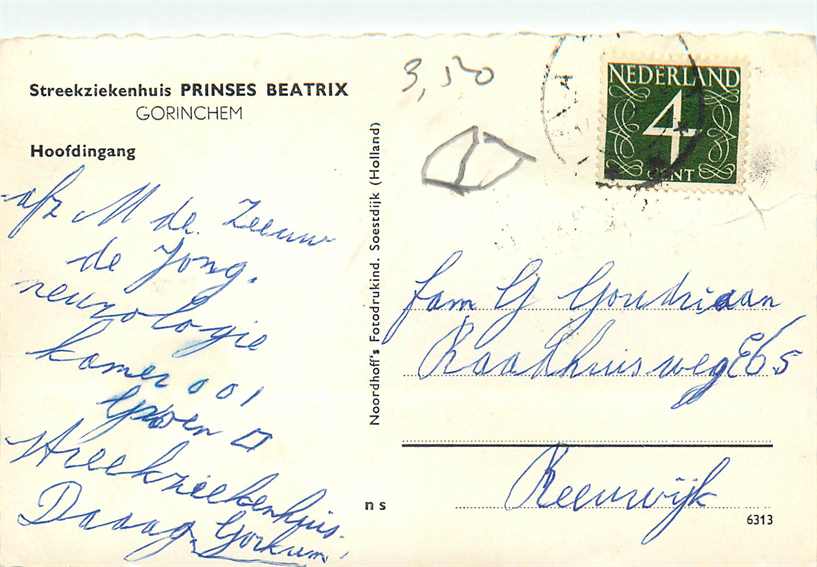 Streekziekenhuis PRINSES BEATRIX
GORINCHEM
Hoofdingang
afz M de Zeeuw
de Jong.
neurologie
kamer 001
Groen
streekziekenhuis
Daaag Gorkum!
Noordhoff's Fotodrukind. Soestdijk (Holland)
n s
3,50
NEDERLAND
4
CENT
fam G Goudriaan
Raadhuisweg E65
Reeuwijk
6313